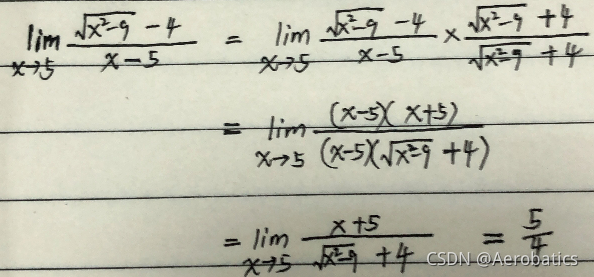 lim x→5 (√(x²-9) - 4)/(x-5) = lim x→5 (√(x²-9) - 4)/(x-5) × (√(x²-9) + 4)/(√(x²-9) + 4)
= lim x→5 (x-5)(x+5)/((x-5)(√(x²-9) + 4))
= lim x→5 (x+5)/(√(x²-9) + 4) = 5/4
CSDN @Aerobatics